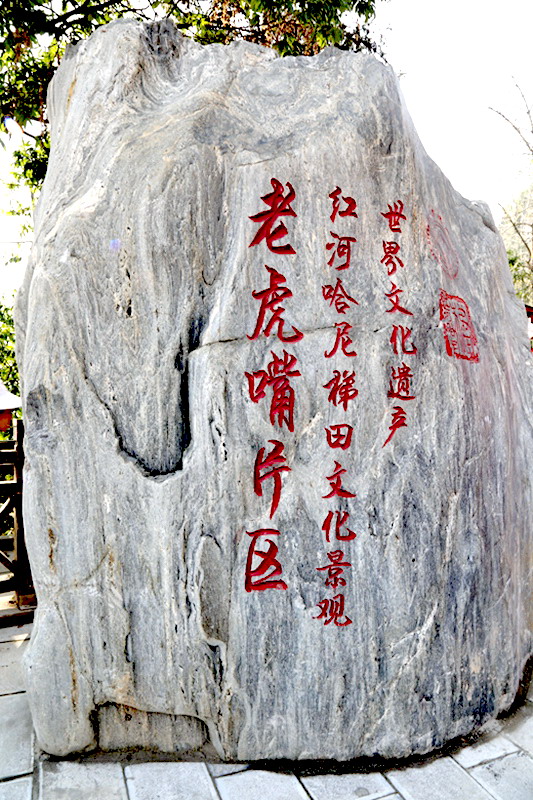 世界文化遗产
红河哈尼梯田文化景观
老虎嘴片区